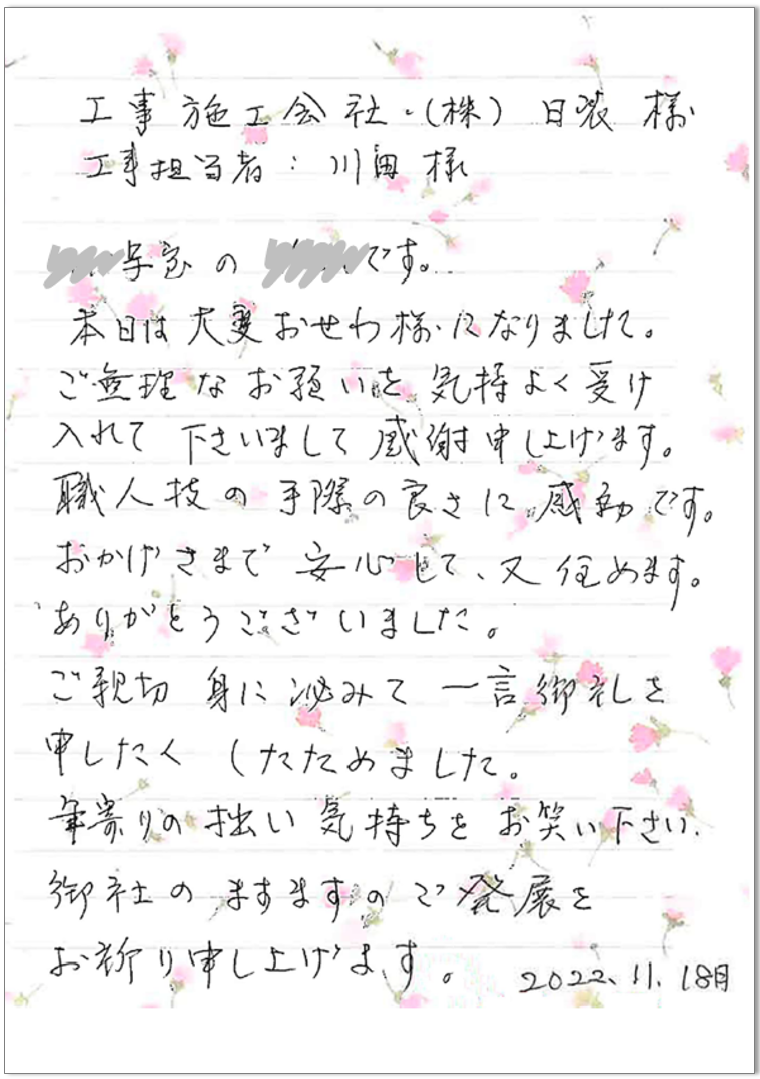 工事施工会社・(株) 日装 様
工事担当者：川田 様
号室 の です。
本日は大変おせわ様になりました。
ご無理なお願いを気持よく受け
入れて下さいまして感謝申し上げます。
職人技の手際の良さに感動です。
おかげさまで安心して、又住めます。
ありがとうございました。
ご親切身に泌みて一言御礼を
申したくしたためました。
年寄りの拙い気持ちをお笑い下さい.
御社のますますのご発展を
お祈り申し上げます。 2022、11. 18日